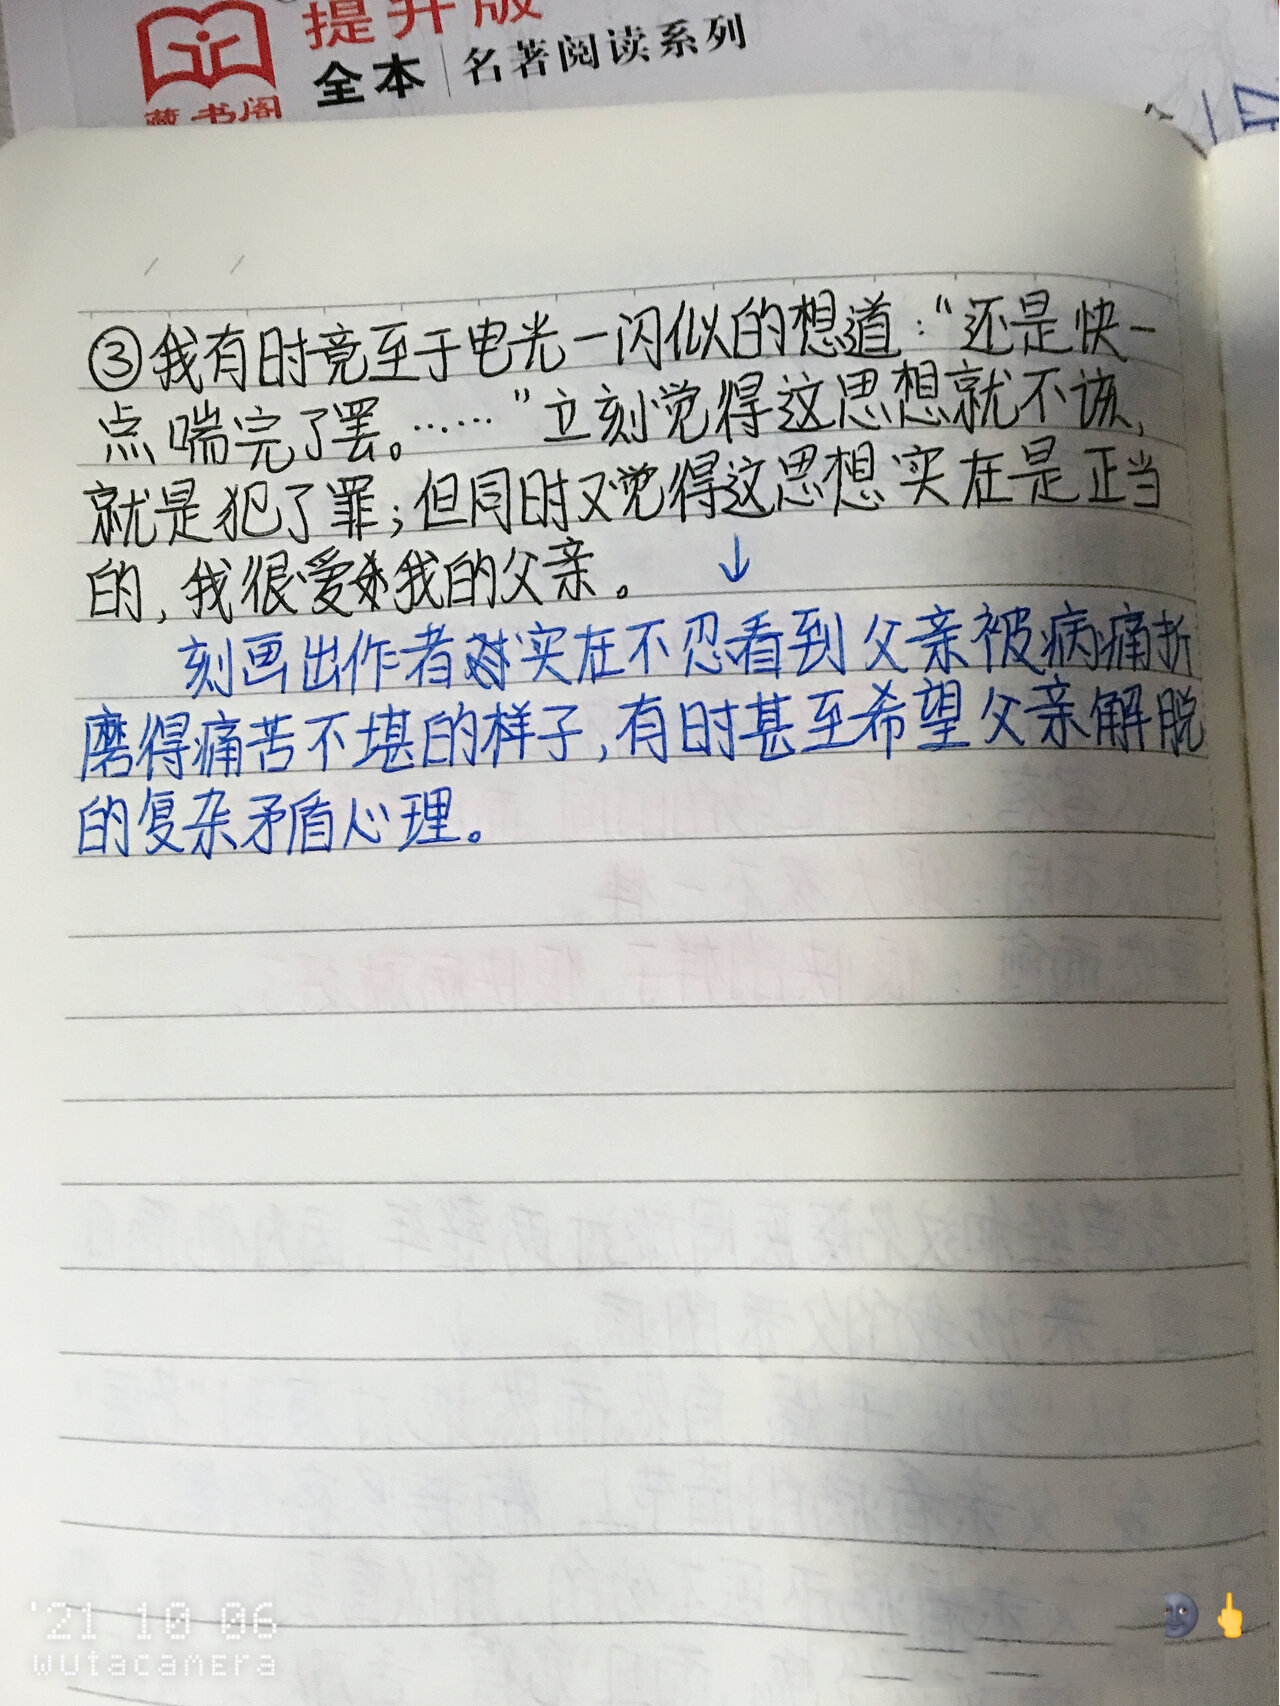 提升版
全本 | 名著阅读系列
藏书阁
③我有时竟至于电光一闪似的想道：“还是快一
点喘完了罢。……”立刻觉得这思想就不该，
就是犯了罪；但同时又觉得这思想实在是正当
的，我很爱我的父亲。
↓
刻画出作者实在不忍看到父亲被病痛折
磨得痛苦不堪的样子，有时甚至希望父亲解脱
的复杂矛盾心理。
'21 10 06
wutacamera